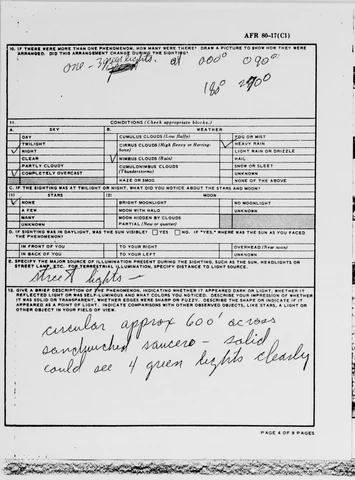 AFR 80-17(C1)
10. IF THERE WERE MORE THAN ONE PHENOMENON, HOW MANY WERE THERE? DRAW A PICTURE TO SHOW HOW THEY WERE
ARRANGED. DID THIS ARRANGEMENT CHANGE DURING THE SIGHTING?
one - 3 green lights. at 000° 090°
180° 270°
11. CONDITIONS (Check appropriate blocks.)
A. SKY B. WEATHER
DAY CUMULUS CLOUDS (Low fluffy) FOG OR MIST
TWILIGHT CIRRUS CLOUDS (High fleecy or Herring- HEAVY RAIN
NIGHT bone) LIGHT RAIN OR DRIZZLE
CLEAR NIMBUS CLOUDS (Rain) HAIL
PARTLY CLOUDY CUMULONIMBUS CLOUDS SNOW OR SLEET
COMPLETELY OVERCAST (Thunderstorms) UNKNOWN
HAZE OR SMOG NONE OF THE ABOVE
C. IF THE SIGHTING WAS AT TWILIGHT OR NIGHT, WHAT DID YOU NOTICE ABOUT THE STARS AND MOON?
(1) STARS (2) MOON
NONE BRIGHT MOONLIGHT NO MOONLIGHT
A FEW MOON WITH HALO UNKNOWN
MANY MOON HIDDEN BY CLOUDS
UNKNOWN PARTIAL (New or quarter)
D. IF SIGHTING WAS IN DAYLIGHT, WAS THE SUN VISIBLE? YES NO. IF "YES," WHERE WAS THE SUN AS YOU FACED
THE PHENOMENON?
IN FRONT OF YOU TO YOUR RIGHT OVERHEAD (Near noon)
IN BACK OF YOU TO YOUR LEFT UNKNOWN
E. SPECIFY THE MAJOR SOURCE OF ILLUMINATION PRESENT DURING THE SIGHTING, SUCH AS THE SUN, HEADLIGHTS OR
STREET LAMP, ETC. FOR TERRESTRIAL ILLUMINATION, SPECIFY DISTANCE TO LIGHT SOURCE.
street lights -
12. GIVE A BRIEF DESCRIPTION OF THE PHENOMENON, INDICATING WHETHER IT APPEARED DARK OR LIGHT, WHETHER IT
REFLECTED LIGHT OR WAS SELF-LUMINOUS AND WHAT COLORS YOU NOTICED. DESCRIBE YOUR IMPRESSION OF WHETHER
IT WAS SOLID OR TRANSPARENT, WHETHER EDGES WERE SHARP OR FUZZY. DESCRIBE THE SHAPE OR INDICATE IF IT
APPEARED AS A POINT OF LIGHT. INDICATE COMPARISONS WITH OTHER OBSERVED OBJECTS, LIKE STARS, A LIGHT OR
OTHER OBJECT IN YOUR FIELD OF VIEW.
circular approx 600' across
sandwiched saucers - solid
could see 4 green lights clearly
PAGE 4 OF 9 PAGES